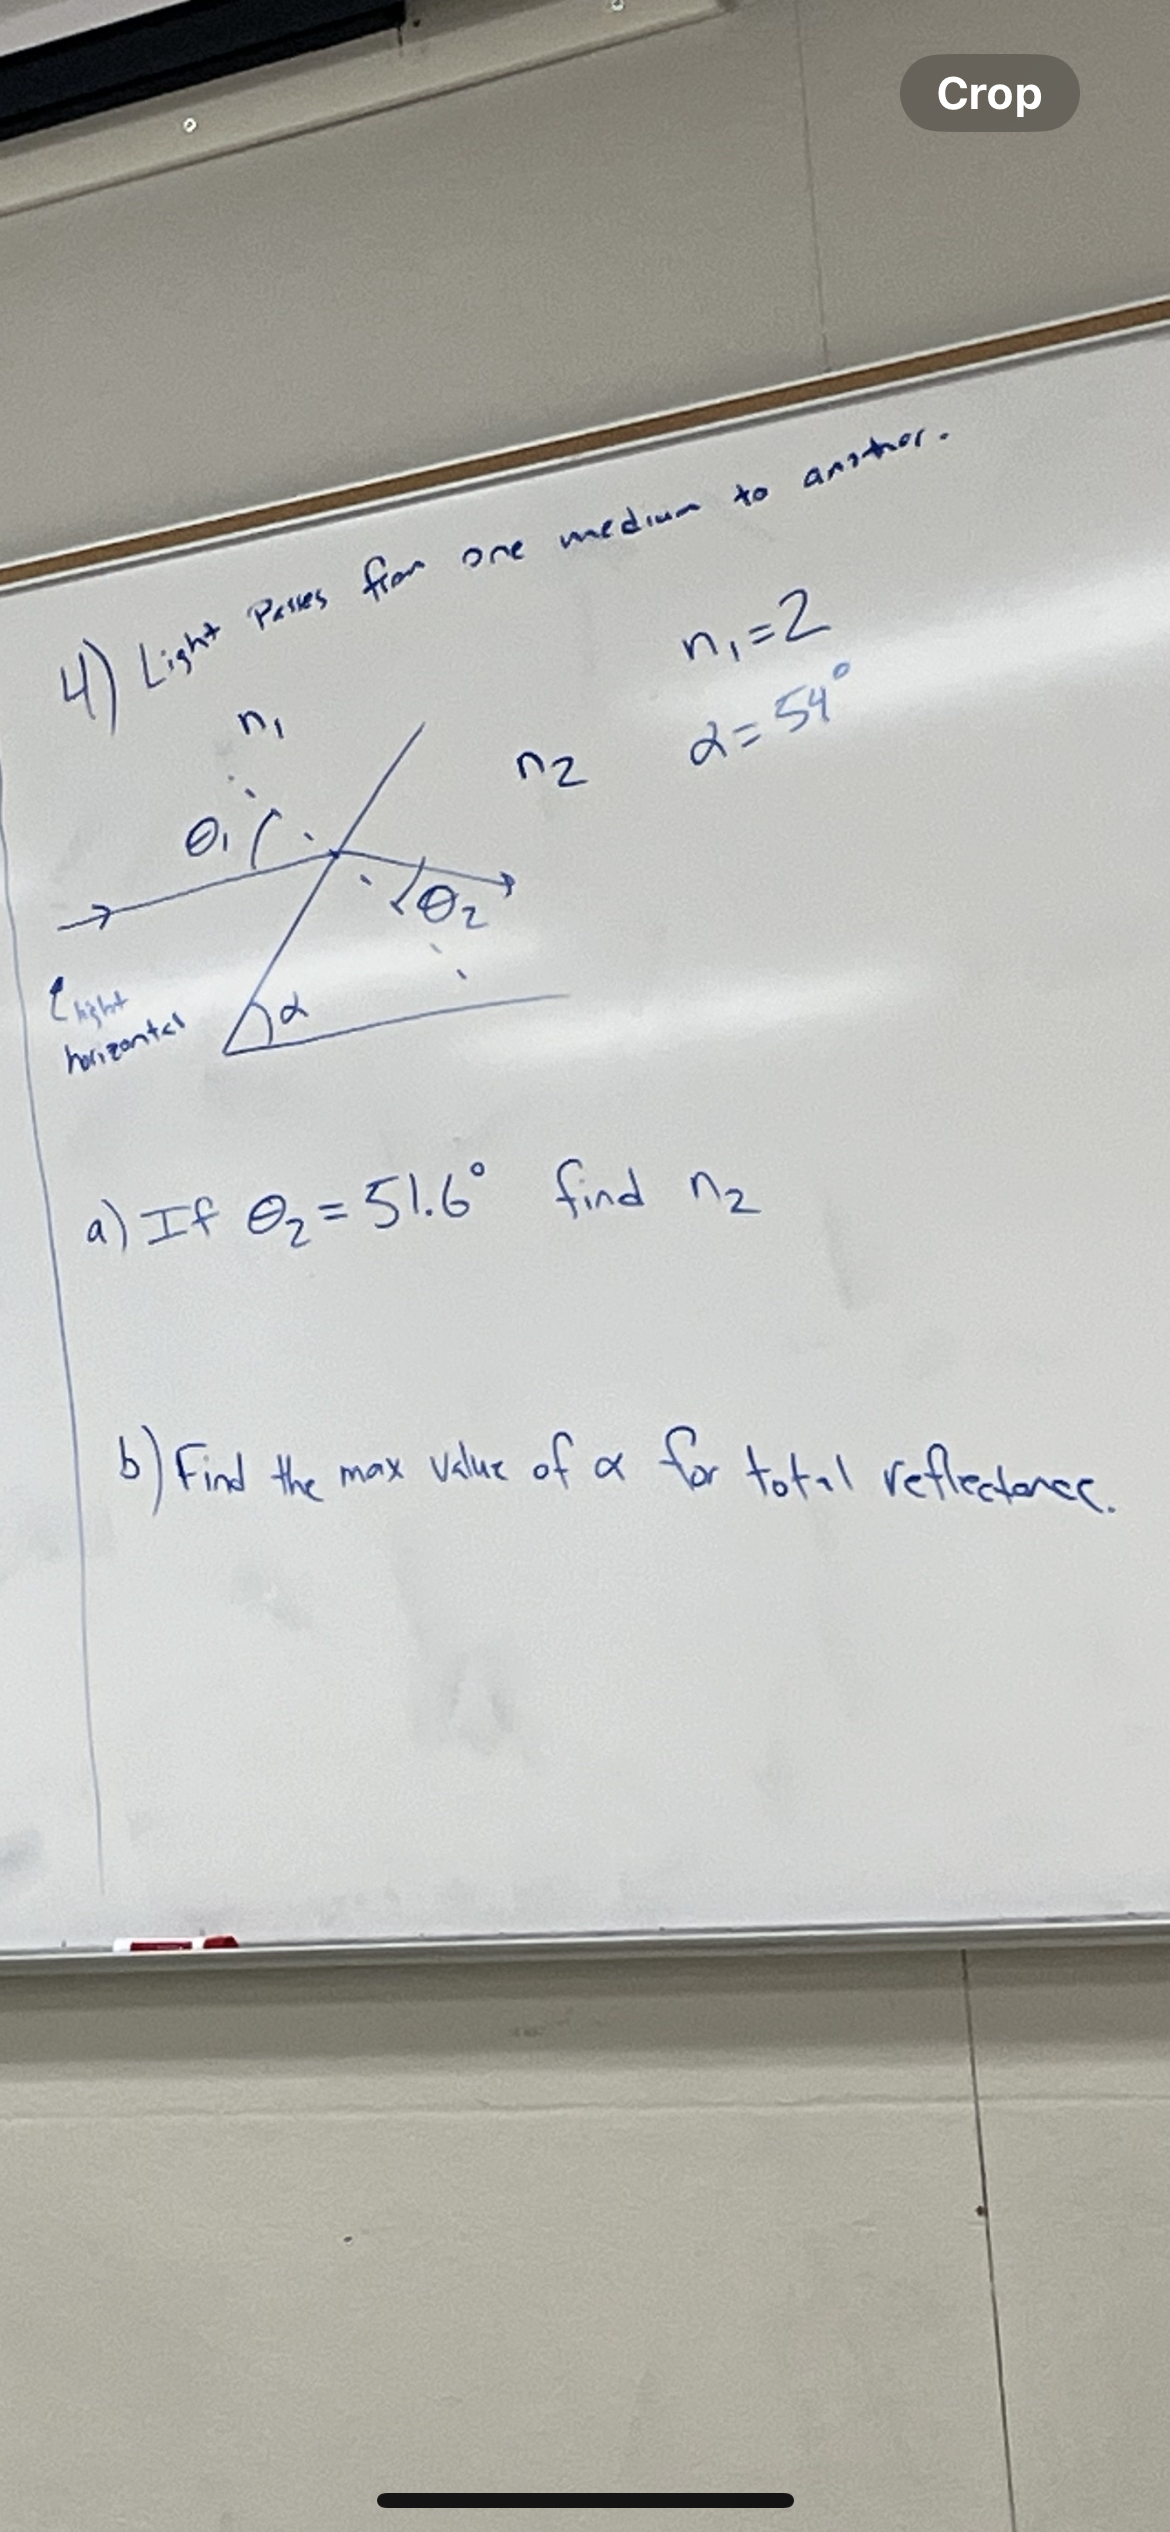 Crop
4) Light Passes from one medium to another.
n₁
n₂
n₁=2
α=54°
θ₁
θ₂
light
horizontal
α
a) If θ₂=51.6° find n₂
b) Find the max value of α for total reflectance.